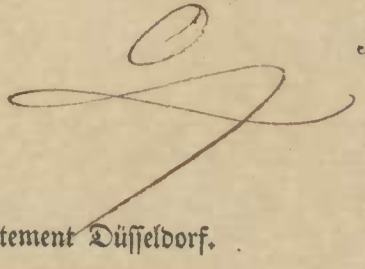 tement Düsseldorf.